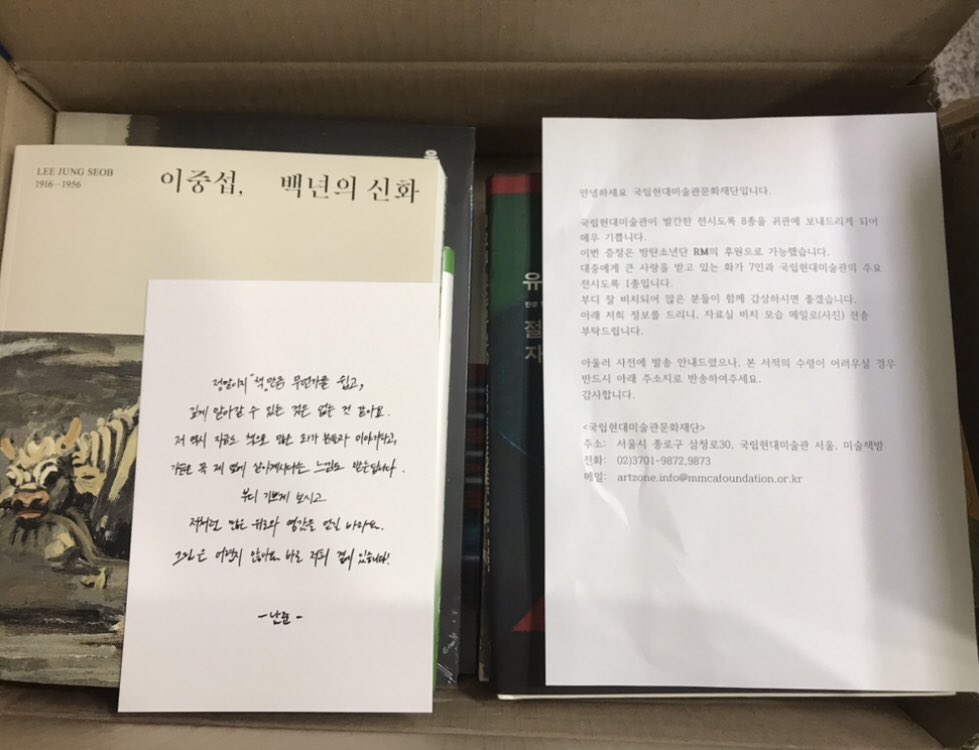 LEE JUNG SEOB
1916–1956
이중섭, 백년의 신화
유
절
자
정말이지 책만큼 무언가를 쉽고,
깊게 알아갈 수 있는 것은 없는 것 같아요.
저 역시 지금도 책으로 많은 화가 분들과 이야기하고,
가끔은 꼭 제 옆에 살아계시다는 느낌도 받곤합니다.
부디 기쁘게 보시고
저처럼 많은 위로와 영감을 얻길 바라요.
그림은 어렵지 않아요. 바로 저희 곁에 있습니다!
-남준-
안녕하세요 국립현대미술관문화재단입니다.
국립현대미술관이 발간한 전시도록 8종을 귀관에 보내드리게 되어
매우 기쁩니다.
이번 증정은 방탄소년단 RM의 후원으로 가능했습니다.
대중에게 큰 사랑을 받고 있는 화가 7인과 국립현대미술관의 주요
전시도록 1종입니다.
부디 잘 비치되어 많은 분들이 함께 감상하시면 좋겠습니다.
아래 저희 정보를 드리니, 자료실 비치 모습 메일로(사진) 전송
부탁드립니다.
아울러 사전에 발송 안내드렸으나, 본 서적의 수령이 어려우실 경우
반드시 아래 주소지로 반송하여주세요.
감사합니다.
<국립현대미술관문화재단>
주소: 서울시 종로구 삼청로30, 국립현대미술관 서울, 미술책방
전화: 02)3701-9872,9873
메일: artzone.info@mmcafoundation.or.kr